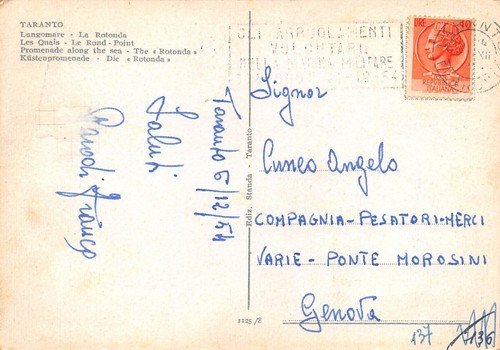 TARANTO
Lungomare - La Rotonda
Les Quais - Le Rond-Point
Promenade along the sea - The « Rotonda »
Küstenpromenade - Die « Rotonda »
GLI ARRUOLAMENTI
VOLONTARI
MILITARE
LIRE 40
ITALIANE
Taranto 6/12/54
Saluti
Parodi Franco
Ediz. Standa - Taranto
Signor
Cuneo Angelo
COMPAGNIA-PESATORI-MERCI
VARIE-PONTE MOROSINI
Genova
1125/8
137
136